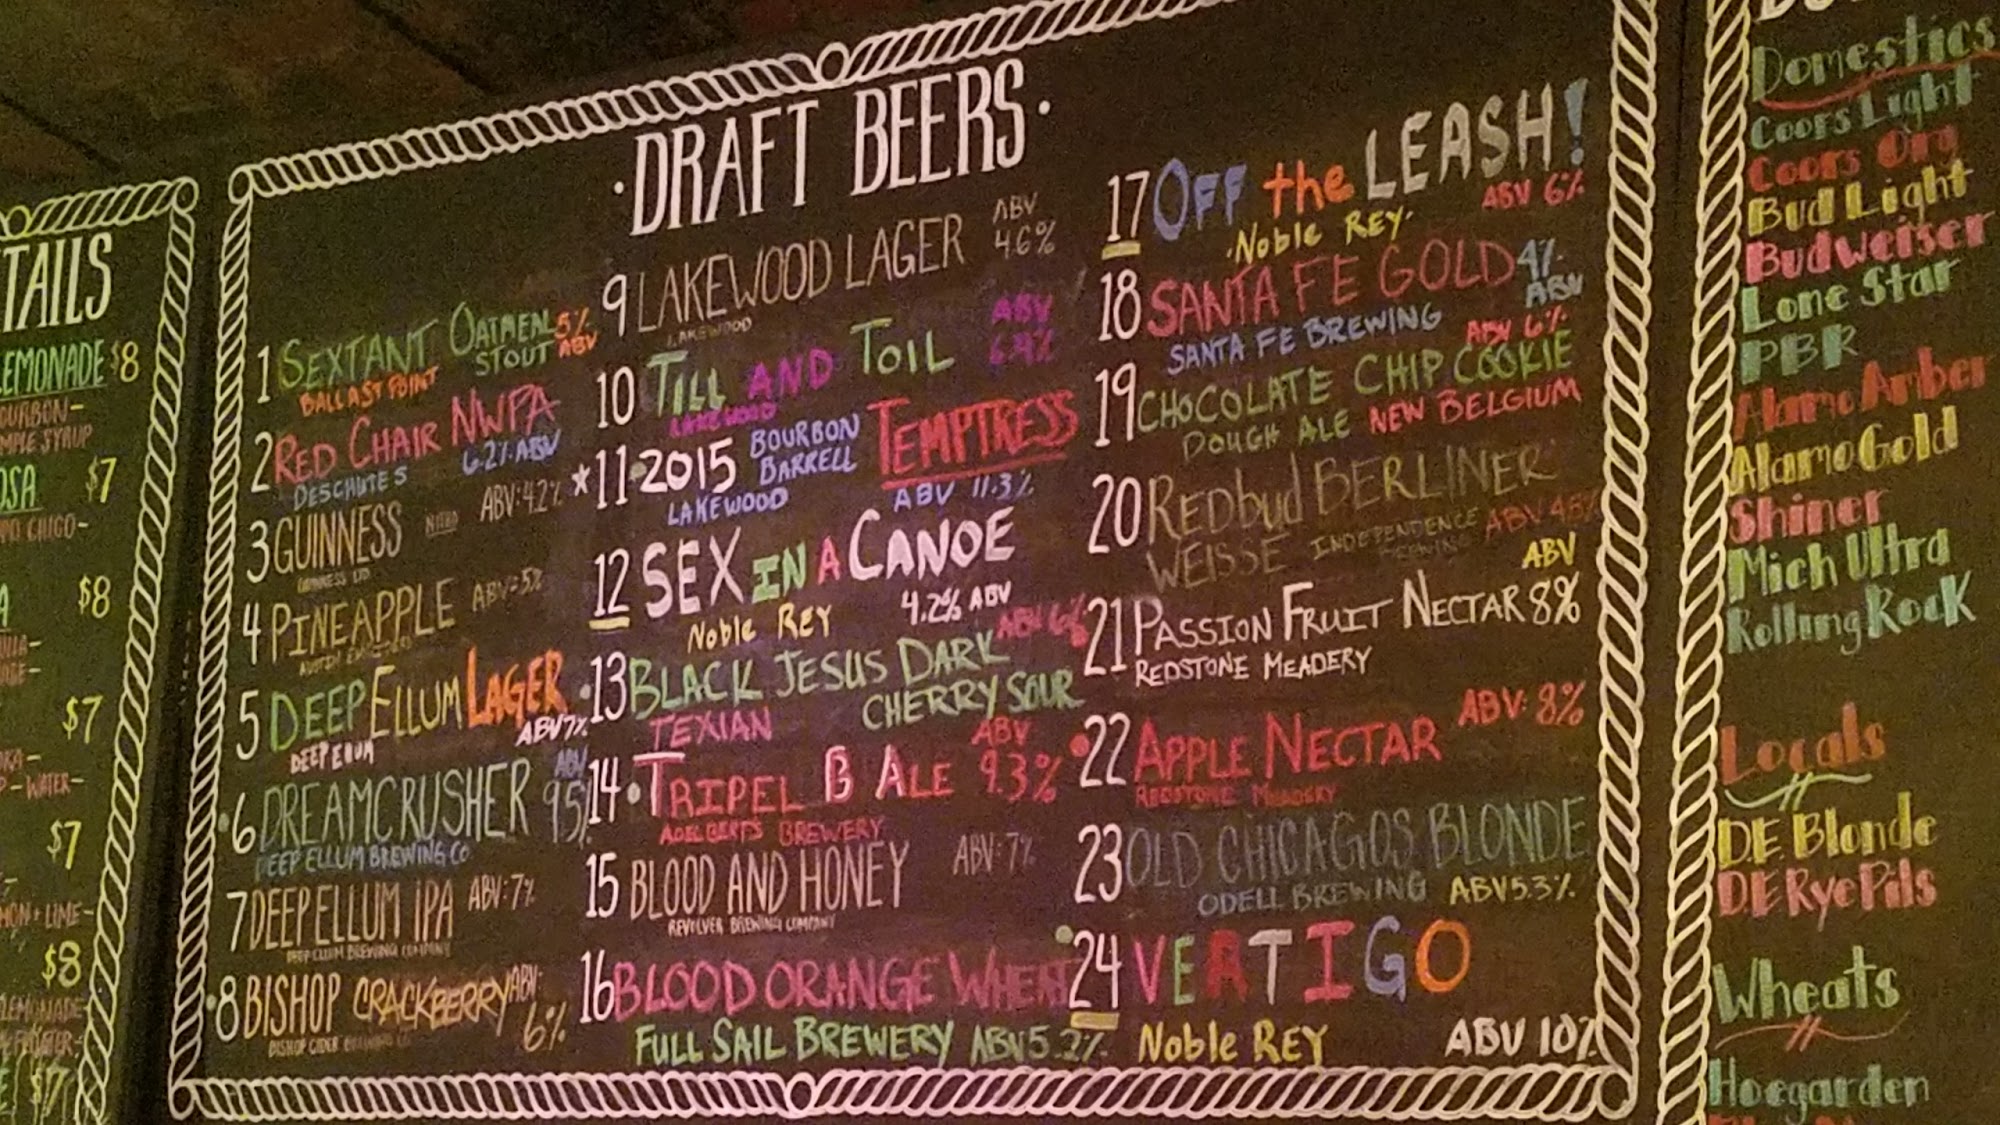 TAILS
LEMONADE $8
OURBON-
MPLE SYRUP
OSA $7
$8
$7
P-WATER-
$7
MON + LIME-
$8
LEMONADE
$7
·DRAFT BEERS·
1 SEXTANT OATMEAL STOUT 5% ABV
BALLAST POINT
2 RED CHAIR NWPA
DESCHUTES 6.2% ABV
3 GUINNESS ABV:4.2%
4 PINEAPPLE ABV:5%
5 DEEP ELLUM LAGER
DEEP ELLUM ABV 7%
·6 DREAMCRUSHER ABV 9.5%
DEEP ELLUM BREWING CO
7 DEEP ELLUM IPA ABV:7%
DEEP ELLUM BREWING COMPANY
·8 BISHOP CRACKBERRY ABV: 6%
BISHOP CIDER
9 LAKEWOOD LAGER ABV 4.6%
LAKEWOOD
10 TILL AND TOIL ABV
LAKEWOOD
*11·2015 BOURBON BARRELL TEMPTRESS
LAKEWOOD ABV 11.3%
12 SEX IN A CANOE
Noble REY 4.2% ABV
·13 BLACK JESUS DARK CHERRY SOUR ABV 6%
TEXIAN
14·TRIPEL B ALE ABV 9.3%
ADELBERTS BREWERY
15 BLOOD AND HONEY ABV:7%
REVOLVER BREWING COMPANY
16 BLOOD ORANGE WHEAT
FULL SAIL BREWERY ABV 5.2%
17 OFF the LEASH!
·Noble REY· ABV 6%
18 SANTA FE GOLD 4% ABV
SANTA FE BREWING
19 CHOCOLATE CHIP COOKIE ABV 6%
DOUGH ALE NEW BELGIUM
20 REDbud BERLINER
WEISSE INDEPENDENCE BREWING ABV
21 PASSION FRUIT NECTAR ABV 8%
REDSTONE MEADERY
·22 APPLE NECTAR ABV: 8%
REDSTONE MEADERY
23 OLD CHICAGOS BLONDE
ODELL BREWING ABV 5.3%
·24 VERTIGO
Noble REY ABV 10%
Domestics
Coors Light
Coors Org
Bud Light
Budweiser
Lone Star
PBR
Alamo Amber
Alamo Gold
Shiner
Mich Ultra
Rolling Rock
Locals
D.E. Blonde
D.E Rye Pils
Wheats
Hoegarden